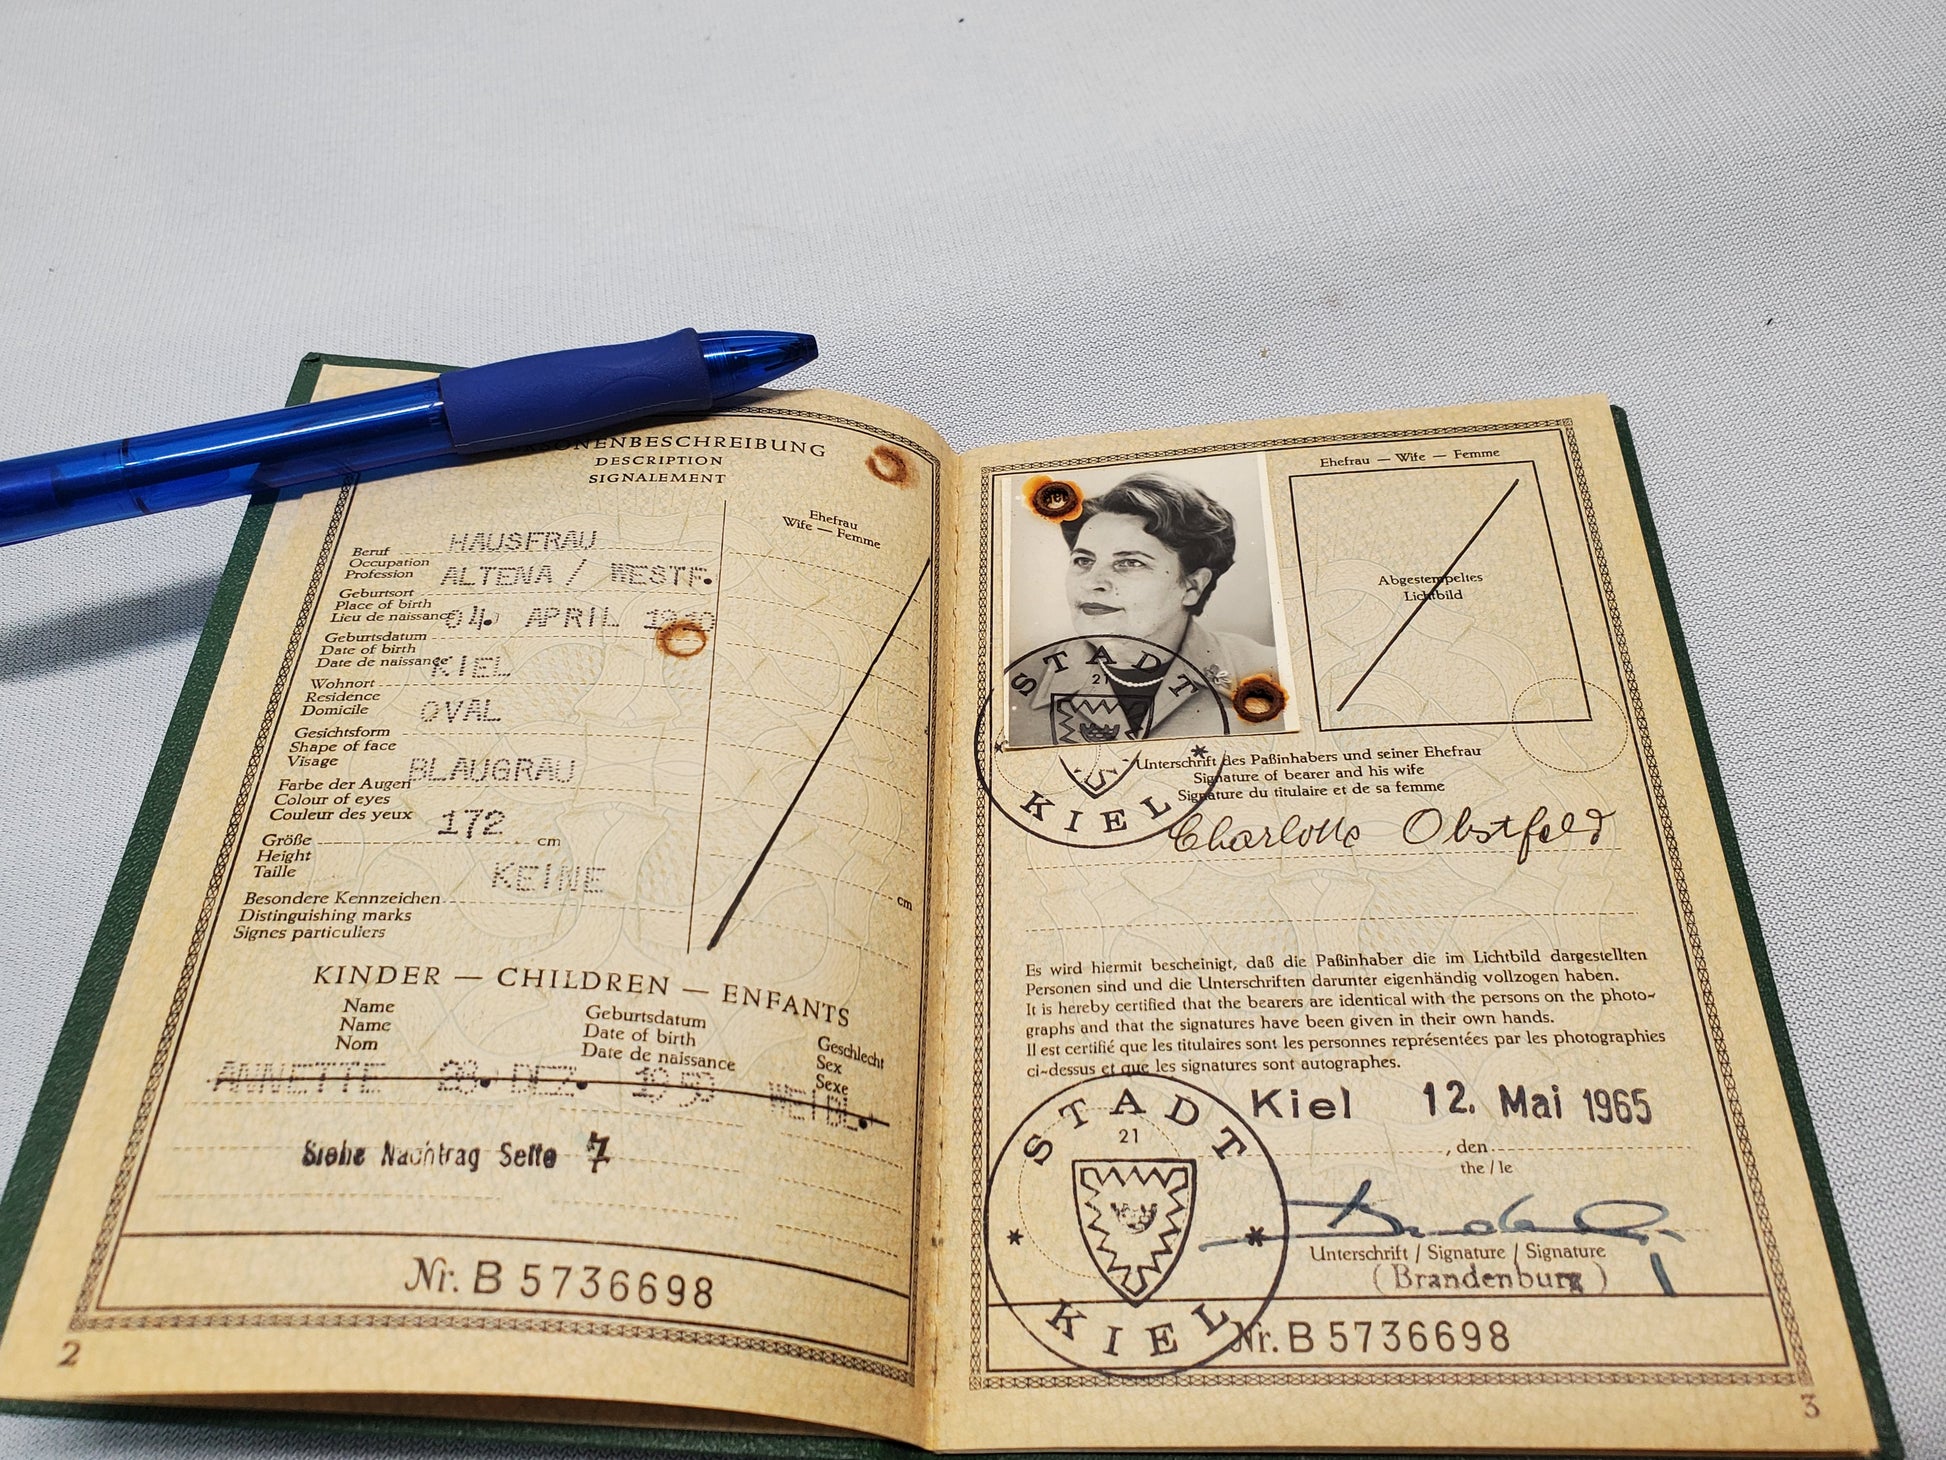 PERSONENBESCHREIBUNG
DESCRIPTION
SIGNALEMENT
Ehefrau
Wife — Femme
Beruf HAUSFRAU
Occupation
Profession
Geburtsort ALTENA / WESTF.
Place of birth
Lieu de naissance
Geburtsdatum 04. APRIL
Date of birth
Date de naissance
Wohnort KIEL
Residence
Domicile
Gesichtsform OVAL
Shape of face
Visage
Farbe der Augen BLAUGRAU
Colour of eyes
Couleur des yeux
Größe 172 cm
Height
Taille
cm
Besondere Kennzeichen KEINE
Distinguishing marks
Signes particuliers
KINDER — CHILDREN — ENFANTS
Name Geburtsdatum Geschlecht
Name Date of birth Sex
Nom Date de naissance Sexe
ANNETTE DEZ. WEIBL.
Siehe Nachtrag Seite 7
Nr. B 5736698
2
Ehefrau — Wife — Femme
Abgestempeltes
Lichtbild
STADT
21
KIEL
Unterschrift des Paßinhabers und seiner Ehefrau
Signature of bearer and his wife
Signature du titulaire et de sa femme
Charlotte Obstfeld
Es wird hiermit bescheinigt, daß die Paßinhaber die im Lichtbild dargestellten
Personen sind und die Unterschriften darunter eigenhändig vollzogen haben.
It is hereby certified that the bearers are identical with the persons on the photo-
graphs and that the signatures have been given in their own hands.
Il est certifié que les titulaires sont les personnes représentées par les photographies
ci-dessus et que les signatures sont autographes.
Kiel 12. Mai 1965
, den
the / le
STADT
21
KIEL
Unterschrift / Signature / Signature
(Brandenburg)
Nr. B 5736698
3